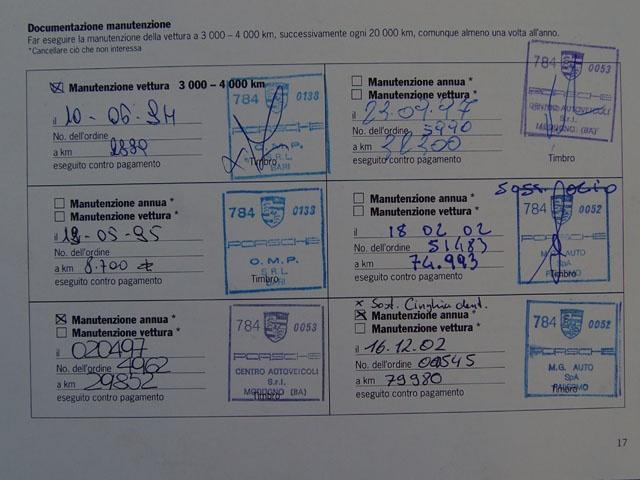 Documentazione manutenzione
Far eseguire la manutenzione della vettura a 3 000 – 4 000 km, successivamente ogni 20 000 km, comunque almeno una volta all'anno.
*Cancellare ciò che non interessa
Manutenzione vettura 3 000 – 4 000 km
il 10-06-94
No. dell'ordine
a km
eseguito contro pagamento
784 0133
PORSCHE
O.M.P.
S.R.L.
BARI
Timbro
Manutenzione annua *
Manutenzione vettura *
il 23.09.97
No. dell'ordine 5990
a km 32300
eseguito contro pagamento
784 0053
PORSCHE
CENTRO AUTOVEICOLI
S.r.l.
MODUGNO (BA)
Timbro
Manutenzione annua *
Manutenzione vettura *
il 19-05-95
No. dell'ordine
a km 8.700
eseguito contro pagamento
784 0133
PORSCHE
O.M.P.
S.R.L.
BARI
Timbro
Sost. olio
Manutenzione annua *
Manutenzione vettura *
il 18 02 02
No. dell'ordine 51483
a km 74.993
eseguito contro pagamento
784 0052
PORSCHE
M.G. AUTO
SpA
PALERMO
Timbro
Manutenzione annua *
Manutenzione vettura *
il 020497
No. dell'ordine 4962
a km 29852
eseguito contro pagamento
784 0053
PORSCHE
CENTRO AUTOVEICOLI
S.r.l.
MODUGNO (BA)
Timbro
x Sost. Cinghia dent.
Manutenzione annua *
Manutenzione vettura *
il 16.12.02
No. dell'ordine 00545
a km 79980
eseguito contro pagamento
784 0052
PORSCHE
M.G. AUTO
SpA
PALERMO
Timbro
17